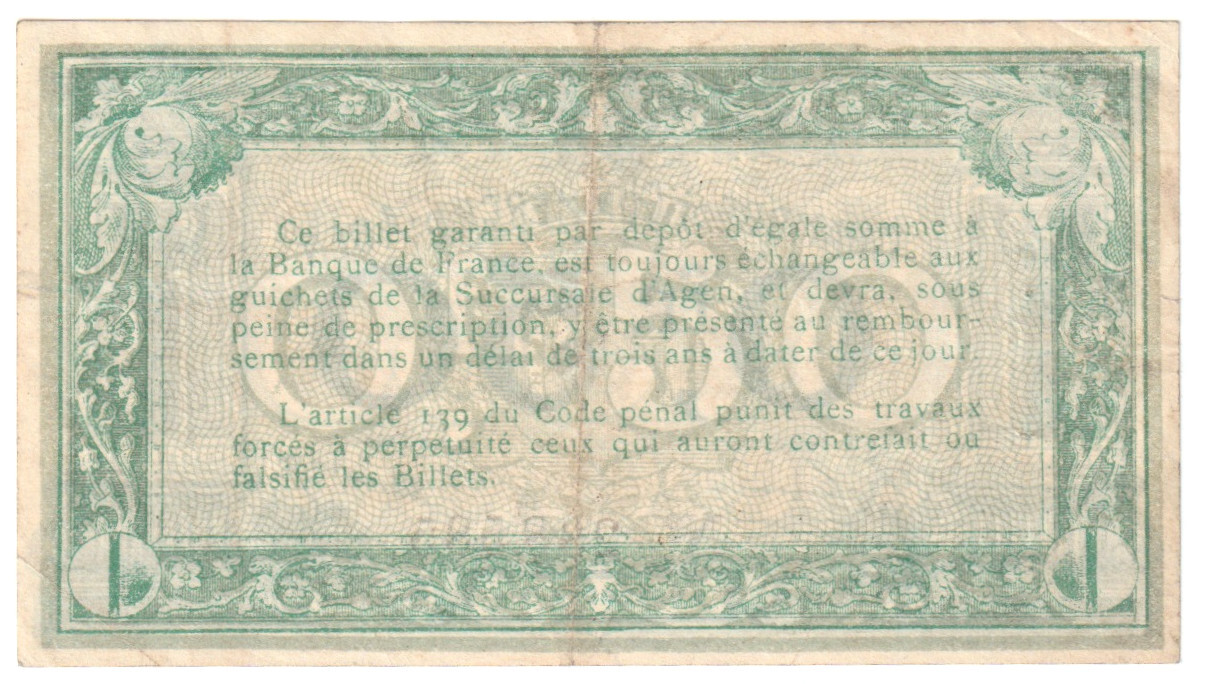 Ce billet garanti par dépôt d'égale somme à
la Banque de France, est toujours échangeable aux
guichets de la Succursale d'Agen, et devra, sous
peine de prescription, y être présenté au rembour-
sement dans un délai de trois ans à dater de ce jour.
L'article 139 du Code pénal punit des travaux
forcés à perpétuité ceux qui auront contrefait ou
falsifié les Billets.